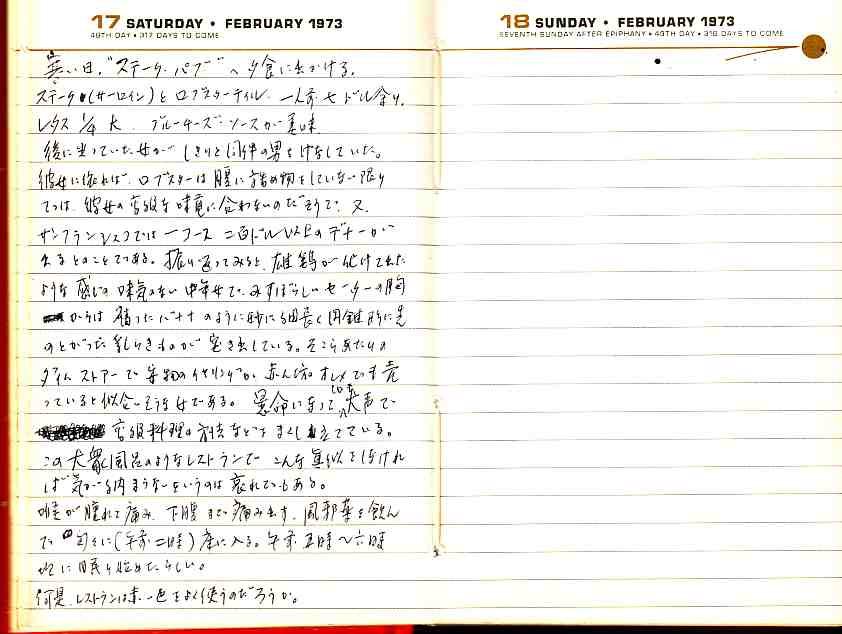 17 SATURDAY • FEBRUARY 1973
48TH DAY • 317 DAYS TO COME
寒い日。"ステーク・パブ"へ夕食に出かける。
ステーク(サーロイン)とロブスターテイル 一人前七ドル余り。
レタス 1/4 大 ブルーチーズ・ソースが美味
後に坐っていた女がしきりと同伴の男をけなしていた。
彼女に依れば、ロブスターは腹に詰め物をしていない限り
ては、彼女の高級な味覚に合わないのだそうで、又、
サンフランシスコでは一コース 二百ドル以上のデナーが
出るとのことである。振り返ってみると、雄鶏が化けて出た
ような感じの味気のない中年女で、みすぼらしいセーターの胸
からは 腐ったバナナのように妙に細長く円錐形に先
のとがった乳らしきものが突き出している。そこらあたりの
ダイムストアーで安物のイヤリングか、赤ん坊のオシメでも売
っていると似合いそうな女である。懸命になって 大声で
高級料理の方法などをまくし立てている。
この大衆風呂のようなレストランで こんな真似をしなけれ
ば気が納まらないというのは哀れでもある。
喉が腫れて痛み、下腹まで痛み出す。風邪薬を飲ん
で 匆々に(午前二時)床に入る。午前五時〜六時
に眠り始めたらしい。
何是 レストランは赤一色をよく使うのだろうか。
18 SUNDAY • FEBRUARY 1973
SEVENTH SUNDAY AFTER EPIPHANY • 49TH DAY • 316 DAYS TO COME